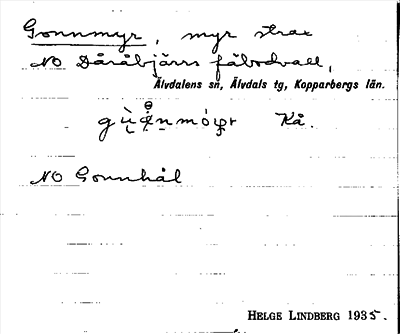 Gonnmyr, myr strax
NO Dåråbjärns fäbodvall,
Älvdalens sn, Älvdals tg, Kopparbergs län.
Kå.
NO Gonnhål
HELGE LINDBERG 1935.